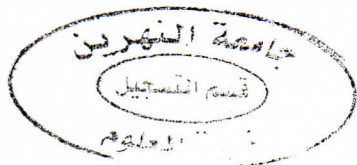 جامعة النهرين
قسم التسجيل
العلوم